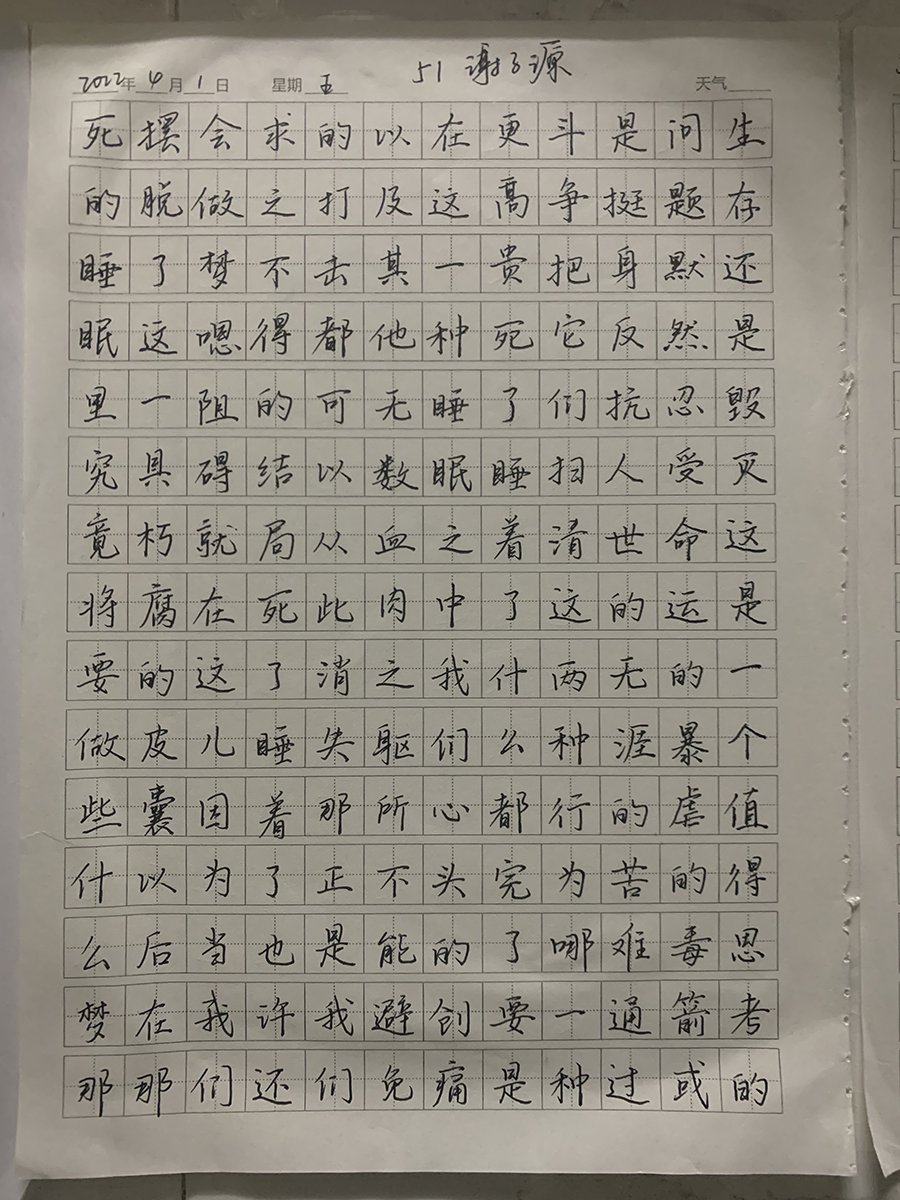 2022年4月1日 星期五 51 谢子源 天气
生存还是毁灭这是一个值得思考的
问题默然忍受命运的暴虐的毒箭或
是挺身反抗人世的无涯的苦难通过
斗争把它们扫清这两种行为哪一种
更高贵死了睡着了什么都完了要是
在这一种睡眠之中我们心头的创痛
以及其他无数血肉之躯所不能避免
的打击都可以从此消失那正是我们
求之不得的结局死了睡着了也许还
会做梦嗯阻碍就在这儿因为当我们
摆脱了这一具朽腐的皮囊以后在那
死的睡眠里究竟将要做些什么梦那